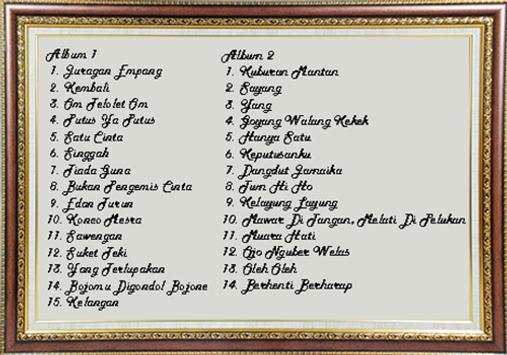 Album 1
1. Juragan Empang
2. Kembali
3. Om Telolet Om
4. Putus Ya Putus
5. Satu Cinta
6. Singgah
7. Tiada Guna
8. Bukan Pengemis Cinta
9. Edan Turun
10. Konco Mesra
11. Sawengan
12. Suket Teki
13. Yang Terlupakan
14. Bojomu Digondol Bojone
15. Kelangan
Album 2
1. Kuburan Mantan
2. Sayang
3. Yang
4. Goyang Walang Kekek
5. Hanya Satu
6. Keputusanku
7. Dangdut Jamaika
8. Tum Hi Ho
9. Kelayung Layung
10. Mawar Di Tangan, Melati Di Pelukan
11. Muara Hati
12. Ojo Nguber Welas
13. Oleh Oleh
14. Berhenti Berharap